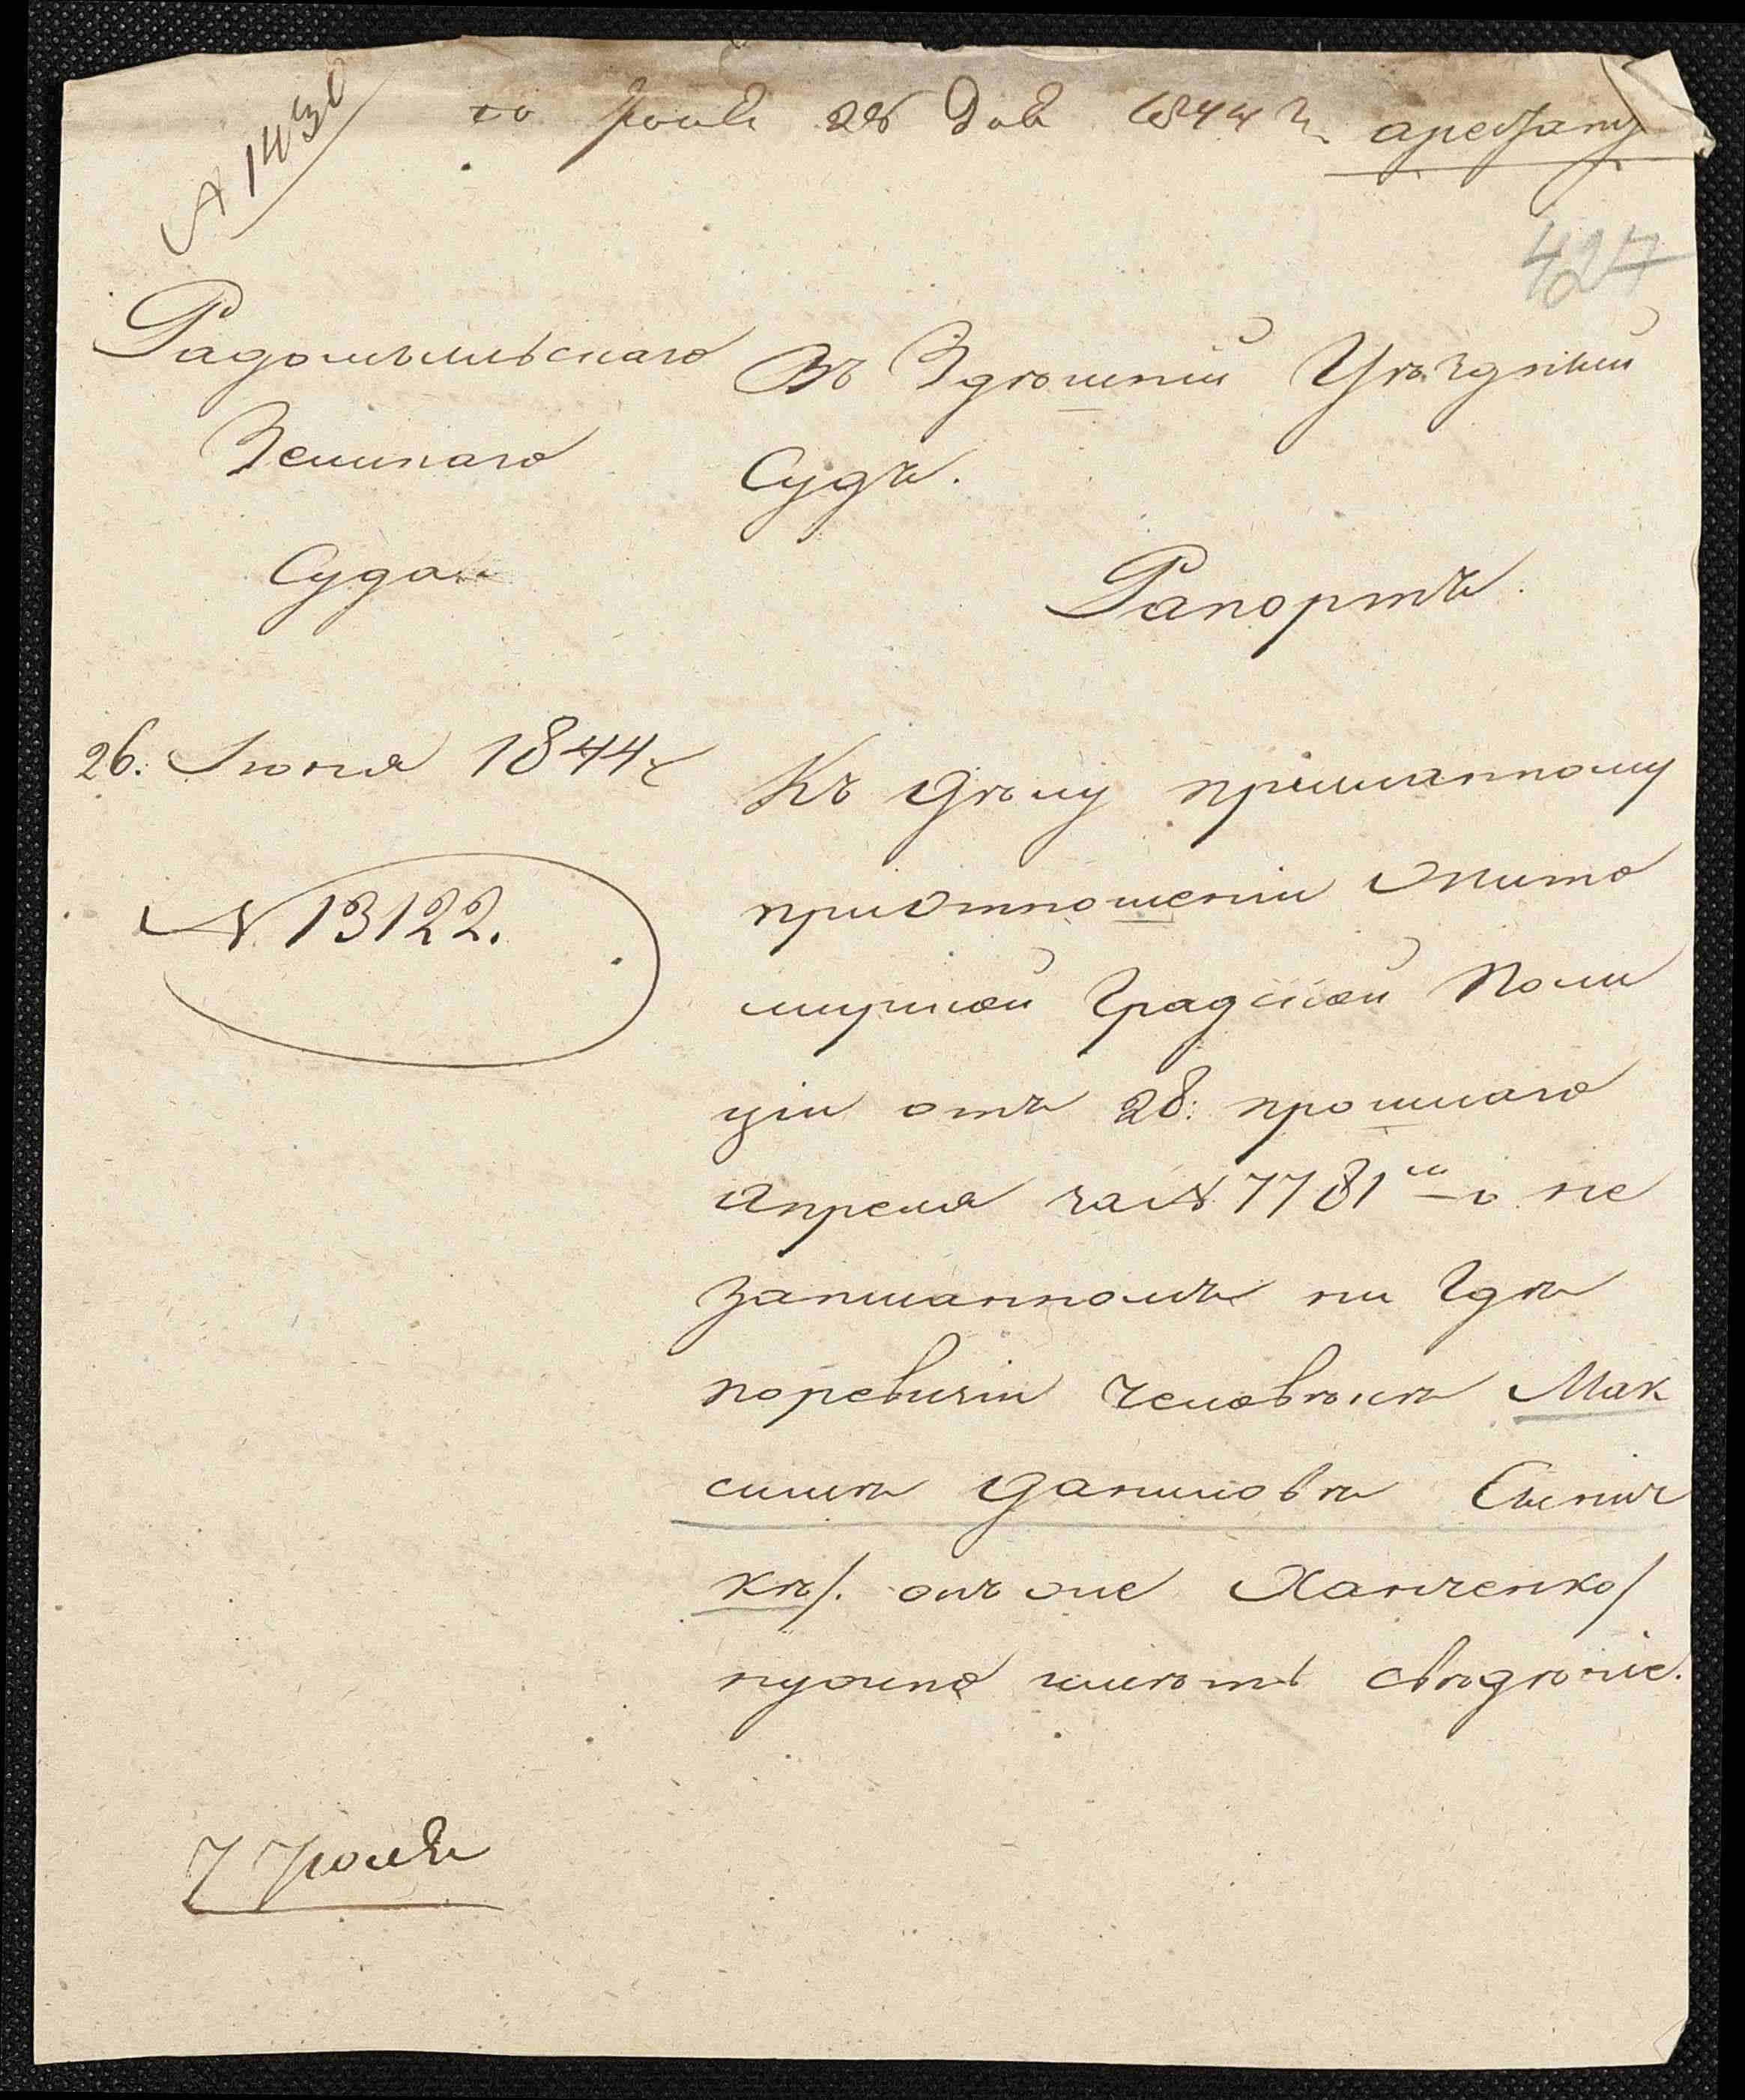 № 1430
28 1844 арестант
427
Радомысльскаго
Земскаго
Суда
26. Іюня 1844
№ 13122.
Въ Здѣшній Уѣздный
Судъ.
Рапортъ.
Къ дѣлу присланному
приотношеніи Жито
мирской Градской Поли
ціи отъ 28: прошлаго
Апреля за № 7781 о не
записанномъ ни где
поревизіи человѣкѣ Мак
симѣ Даниловѣ
кѣ/. онъ же Ханченко/
нужно имѣть свѣдѣніе.